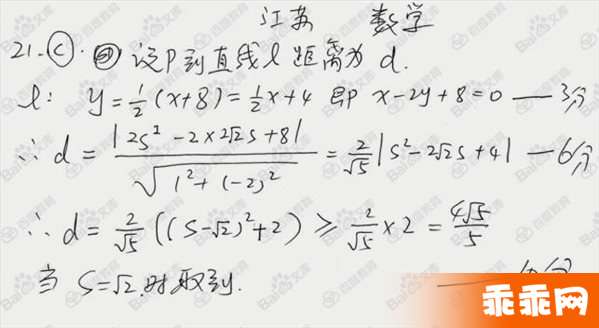 江苏 数学
21. C. 设P到直线l距离为d.
l: y=1/2(x+8)=1/2x+4 即 x-2y+8=0 — 3分
∴ d = |2s²-2×2√2s+8| / √(1²+(-2)²) = 2/√5|s²-2√2s+4| — 6分
∴ d = 2/√5((s-√2)²+2) ≥ 2/√5×2 = 4√5/5
当 s=√2 时取到.
乖乖网